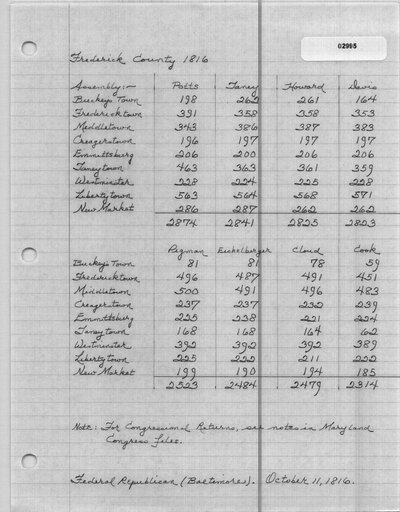 02995
Frederick County 1816
Assembly:- Potts Taney Howard Davis
Buckeys Town 198 262 261 164
Fredericktown 391 358 358 353
Middletown 343 386 387 383
Creagerstown 196 197 197 197
Emmittsburg 206 200 206 206
Taneytown 463 363 361 359
Westminster 228 224 225 228
Libertytown 563 564 568 571
New Market 286 287 262 262
2874 2841 2825 2823
Pigman Eichelberger Cloud Cook
Buckeys Town 81 81 78 59
Fredericktown 496 487 491 451
Middletown 500 491 496 483
Creagertown 237 237 232 239
Emmittsburg 225 238 221 224
Taneytown 168 168 164 62
Westminster 392 392 392 389
Libertytown 225 222 211 222
New Market 199 190 194 185
2523 2484 2479 2314
Note: For Congressional Returns, see notes in Maryland
Congress files.
Federal Republican (Baltimore). October 11, 1816.